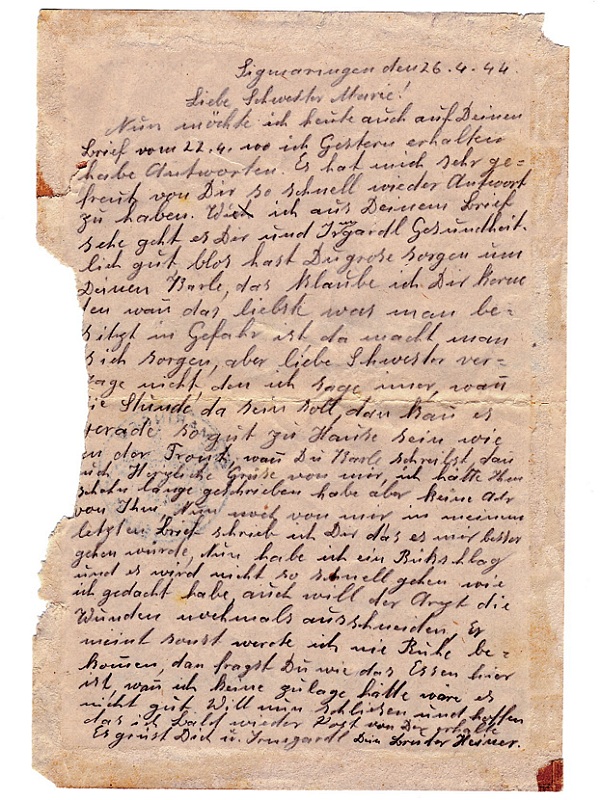 Sigmaringen den 26.4.44.
Liebe Schwester Marie!
Nun möchte ich heute auch auf Deinen
Brief vom 22.4. wo ich Gestern erhalten
habe Antworten. Es hat mich sehr ge-
freut von Dir so schnell wieder Antwort
zu haben. Wie ich aus Deinem Brief
sehe geht es Dir und Irmgardl Gesundheit-
lich gut blos hast Du grose sorgen um
Deinen Karle, das Klaube ich Dir Kerne
den wan̄ das liebste was man be-
sitzt in Gefahr ist da macht man
sich sorgen, aber liebe Schwester ver-
zage nicht, den ich sage imer, wan̄
die Stunde da sein soll, dan kan̄ es
gerade so gut zu Hause sein wie
an der Front, wan̄ Du Karle schreibst, dan
auch Herzliche Grüse von mir, ich hätte Ihm
schon lange geschrieben habe aber keine Adr
von Ihm. Nun noch von mir, in meinem
letzten Brief schrieb ich Dir das es mir besser
gehen würde, nun habe ich ein Rükschlag
und es wird nicht so schnell gehen wie
ich gedacht habe, auch will der Arzt die
Wunden nochmals ausschneiden, Er
meint sonst werde ich nie Ruhe be-
kom̄en, dan fragst Du wie das Essen hier
ist, wan̄ ich keine zulage hätte ware es
nicht gut. Will nun schliesen und hoffen
das ich bald wieder Post von Dir erhalte
Es grüst Dich u. Irmgardl Dein Bruder Heiner.